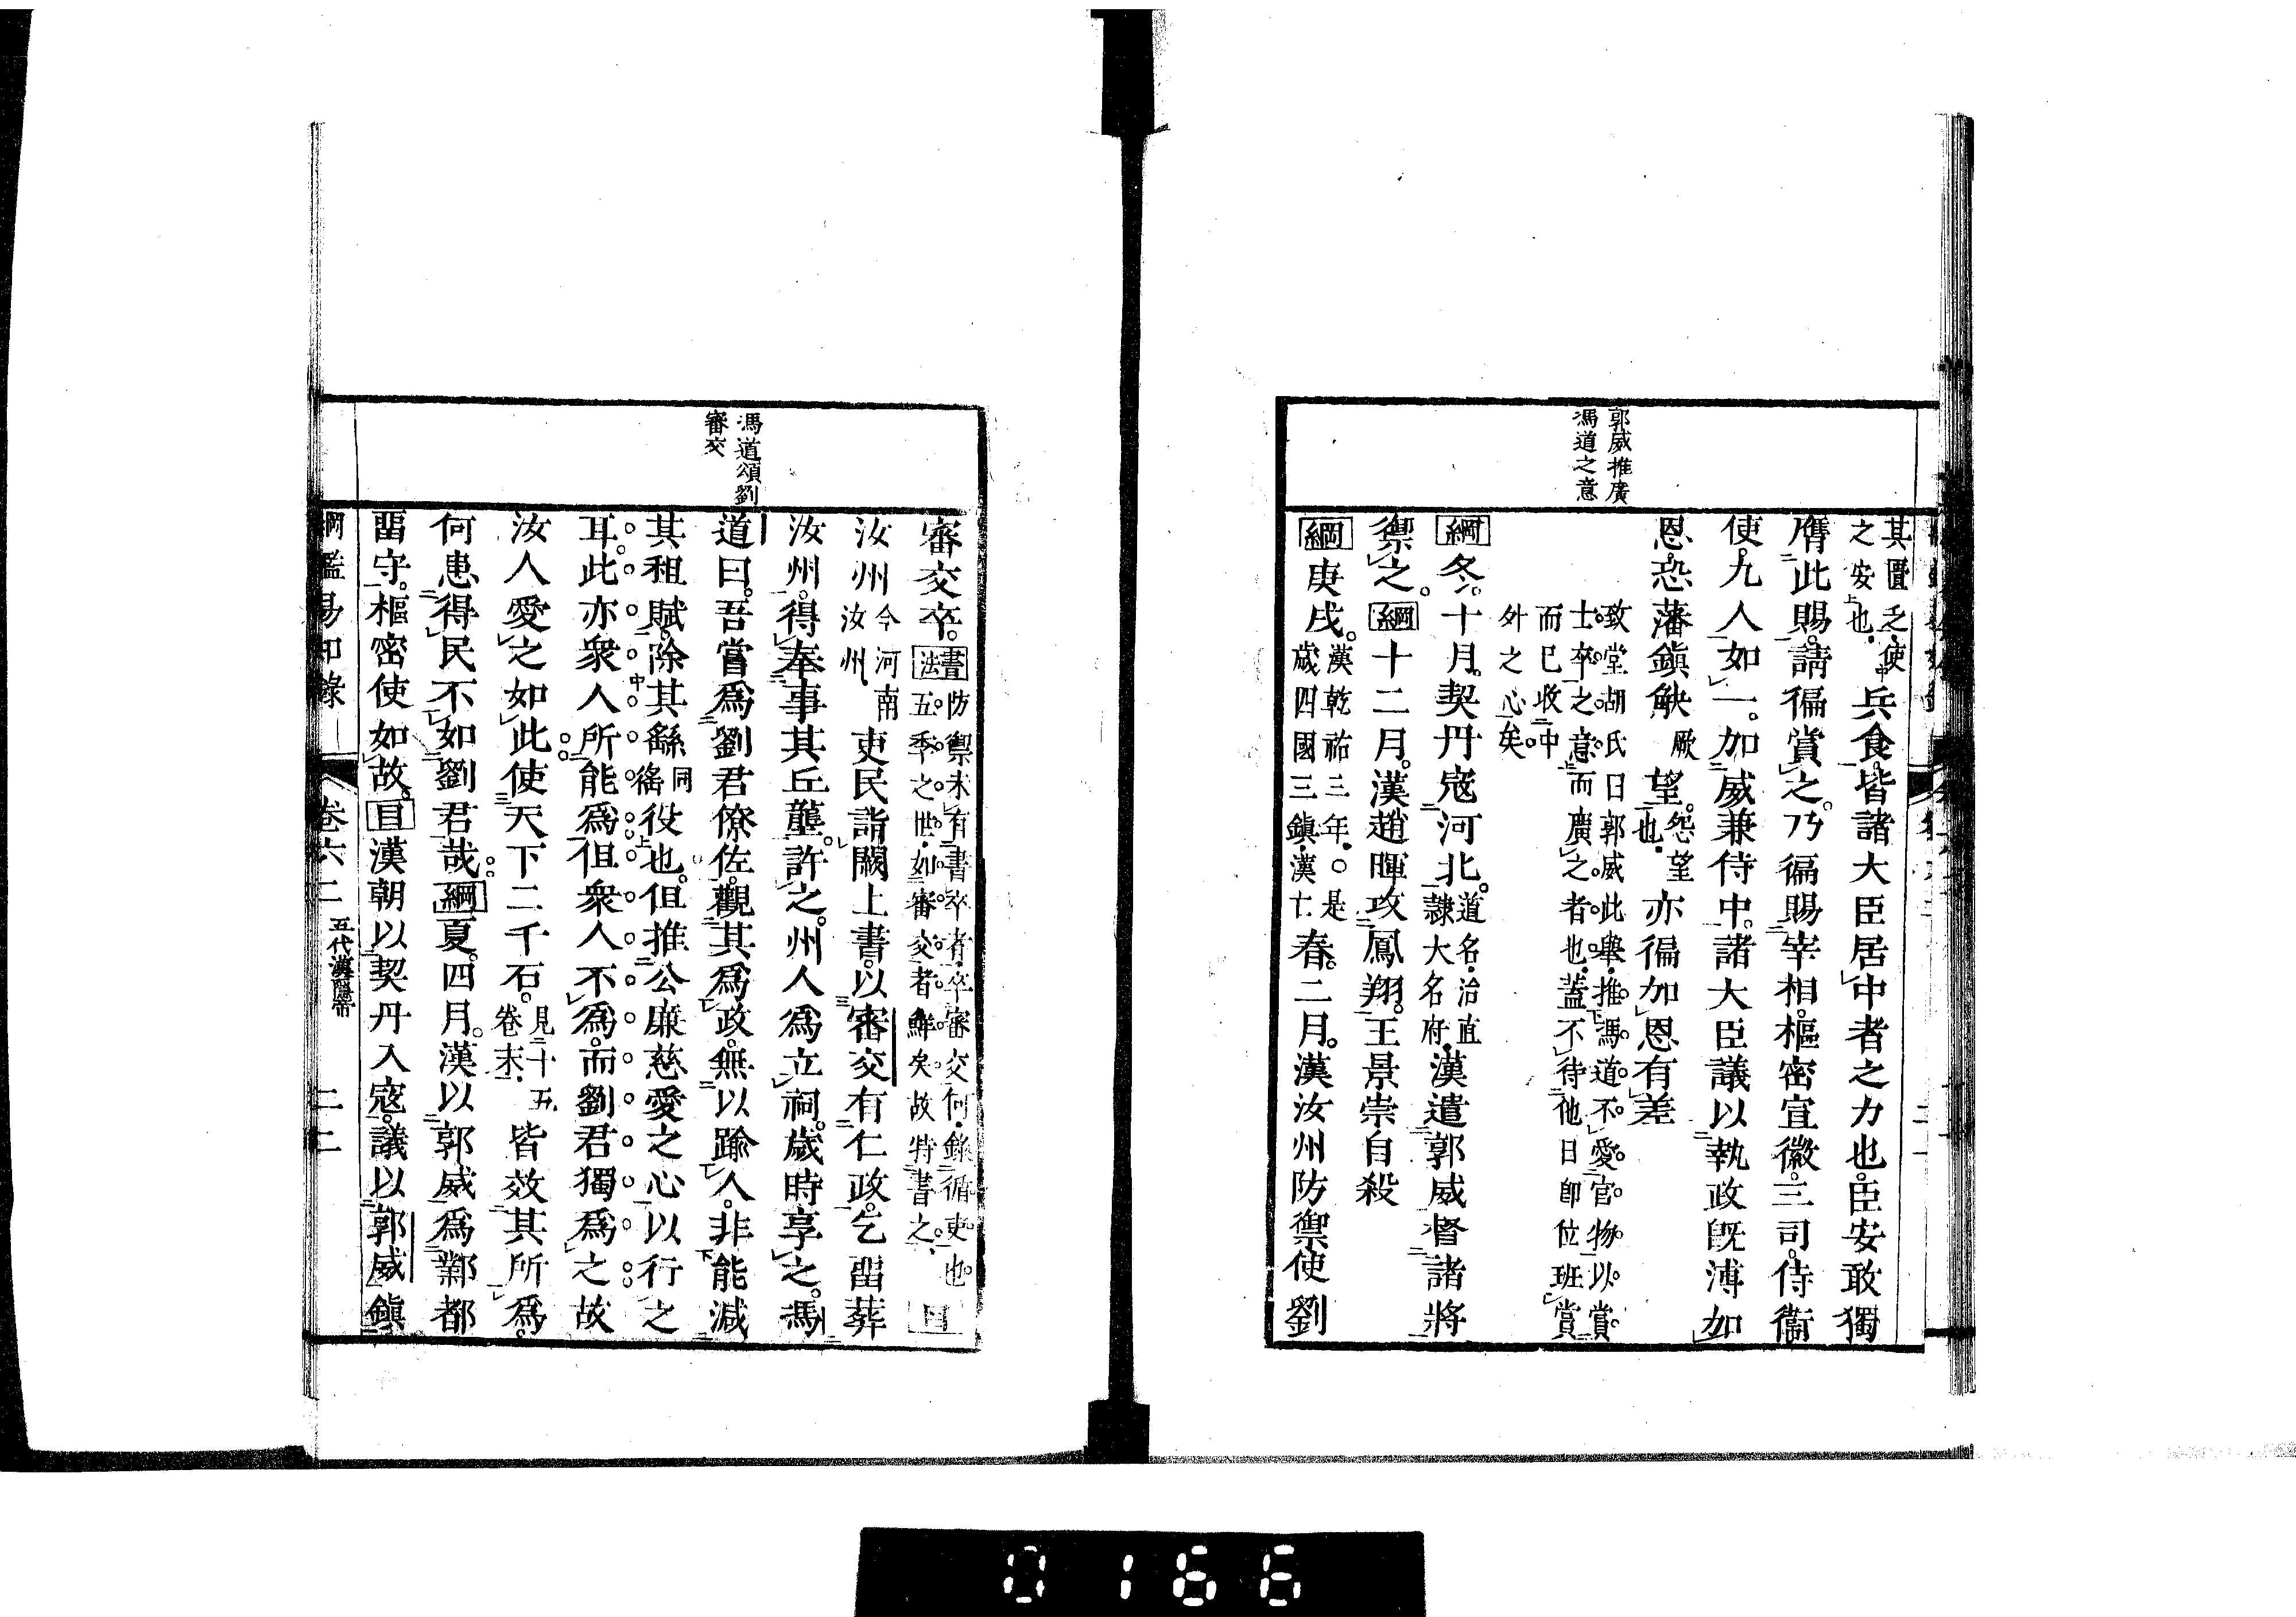 郭威推廣
馮道之意
其匱乏使
之安也
兵食皆諸大臣居中者之力也臣安敢獨
膺此賜請徧賞之乃徧賜宰相樞密宣徽三司侍衞
使九人如一加威兼侍中諸大臣議以執政旣溥加
恩恐藩鎭觖厥望怨望也亦徧加恩有差
致堂胡氏曰郭威此擧推馮道不愛官物以賞
士卒之意而廣之者也蓋不待他日卽位班賞
而已收中
外之心矣
綱冬十月契丹寇河北道名治直隷大名府漢遣郭威督諸將
禦之綱十二月漢趙暉攻鳳翔王景崇自殺
綱庚戌漢乾祐三年○是歲四國三鎭漢亡春二月漢汝州防禦使劉
馮道頌劉
審交
審交卒書法防禦未有書卒者卒審交何錄循吏也五季之世如審交者鮮矣故特書之目
汝州今河南汝州吏民詣闕上書以審交有仁政乞畱葬
汝州得奉事其丘壟許之州人爲立祠歲時享之馮
道曰吾嘗爲劉君僚佐觀其爲政無以踰人非能減
其租賦除其繇同徭役也但推公廉慈愛之心以行之
耳此亦衆人所能爲但衆人不爲而劉君獨爲之故
汝人愛之如此使天下二千石見二十五卷末皆效其所爲
何患得民不如劉君哉綱夏四月漢以郭威爲鄴都
畱守樞密使如故目漢朝以契丹入寇議以郭威鎭
綱鑑易知錄 卷六二 五代漢隱帝 二二
0166